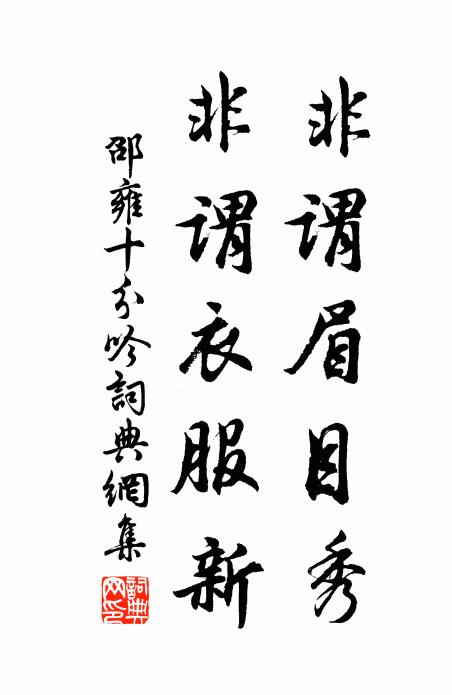 非謂眉目秀
非謂衣服新
邵雍十分吟詞典網集
詞典网印